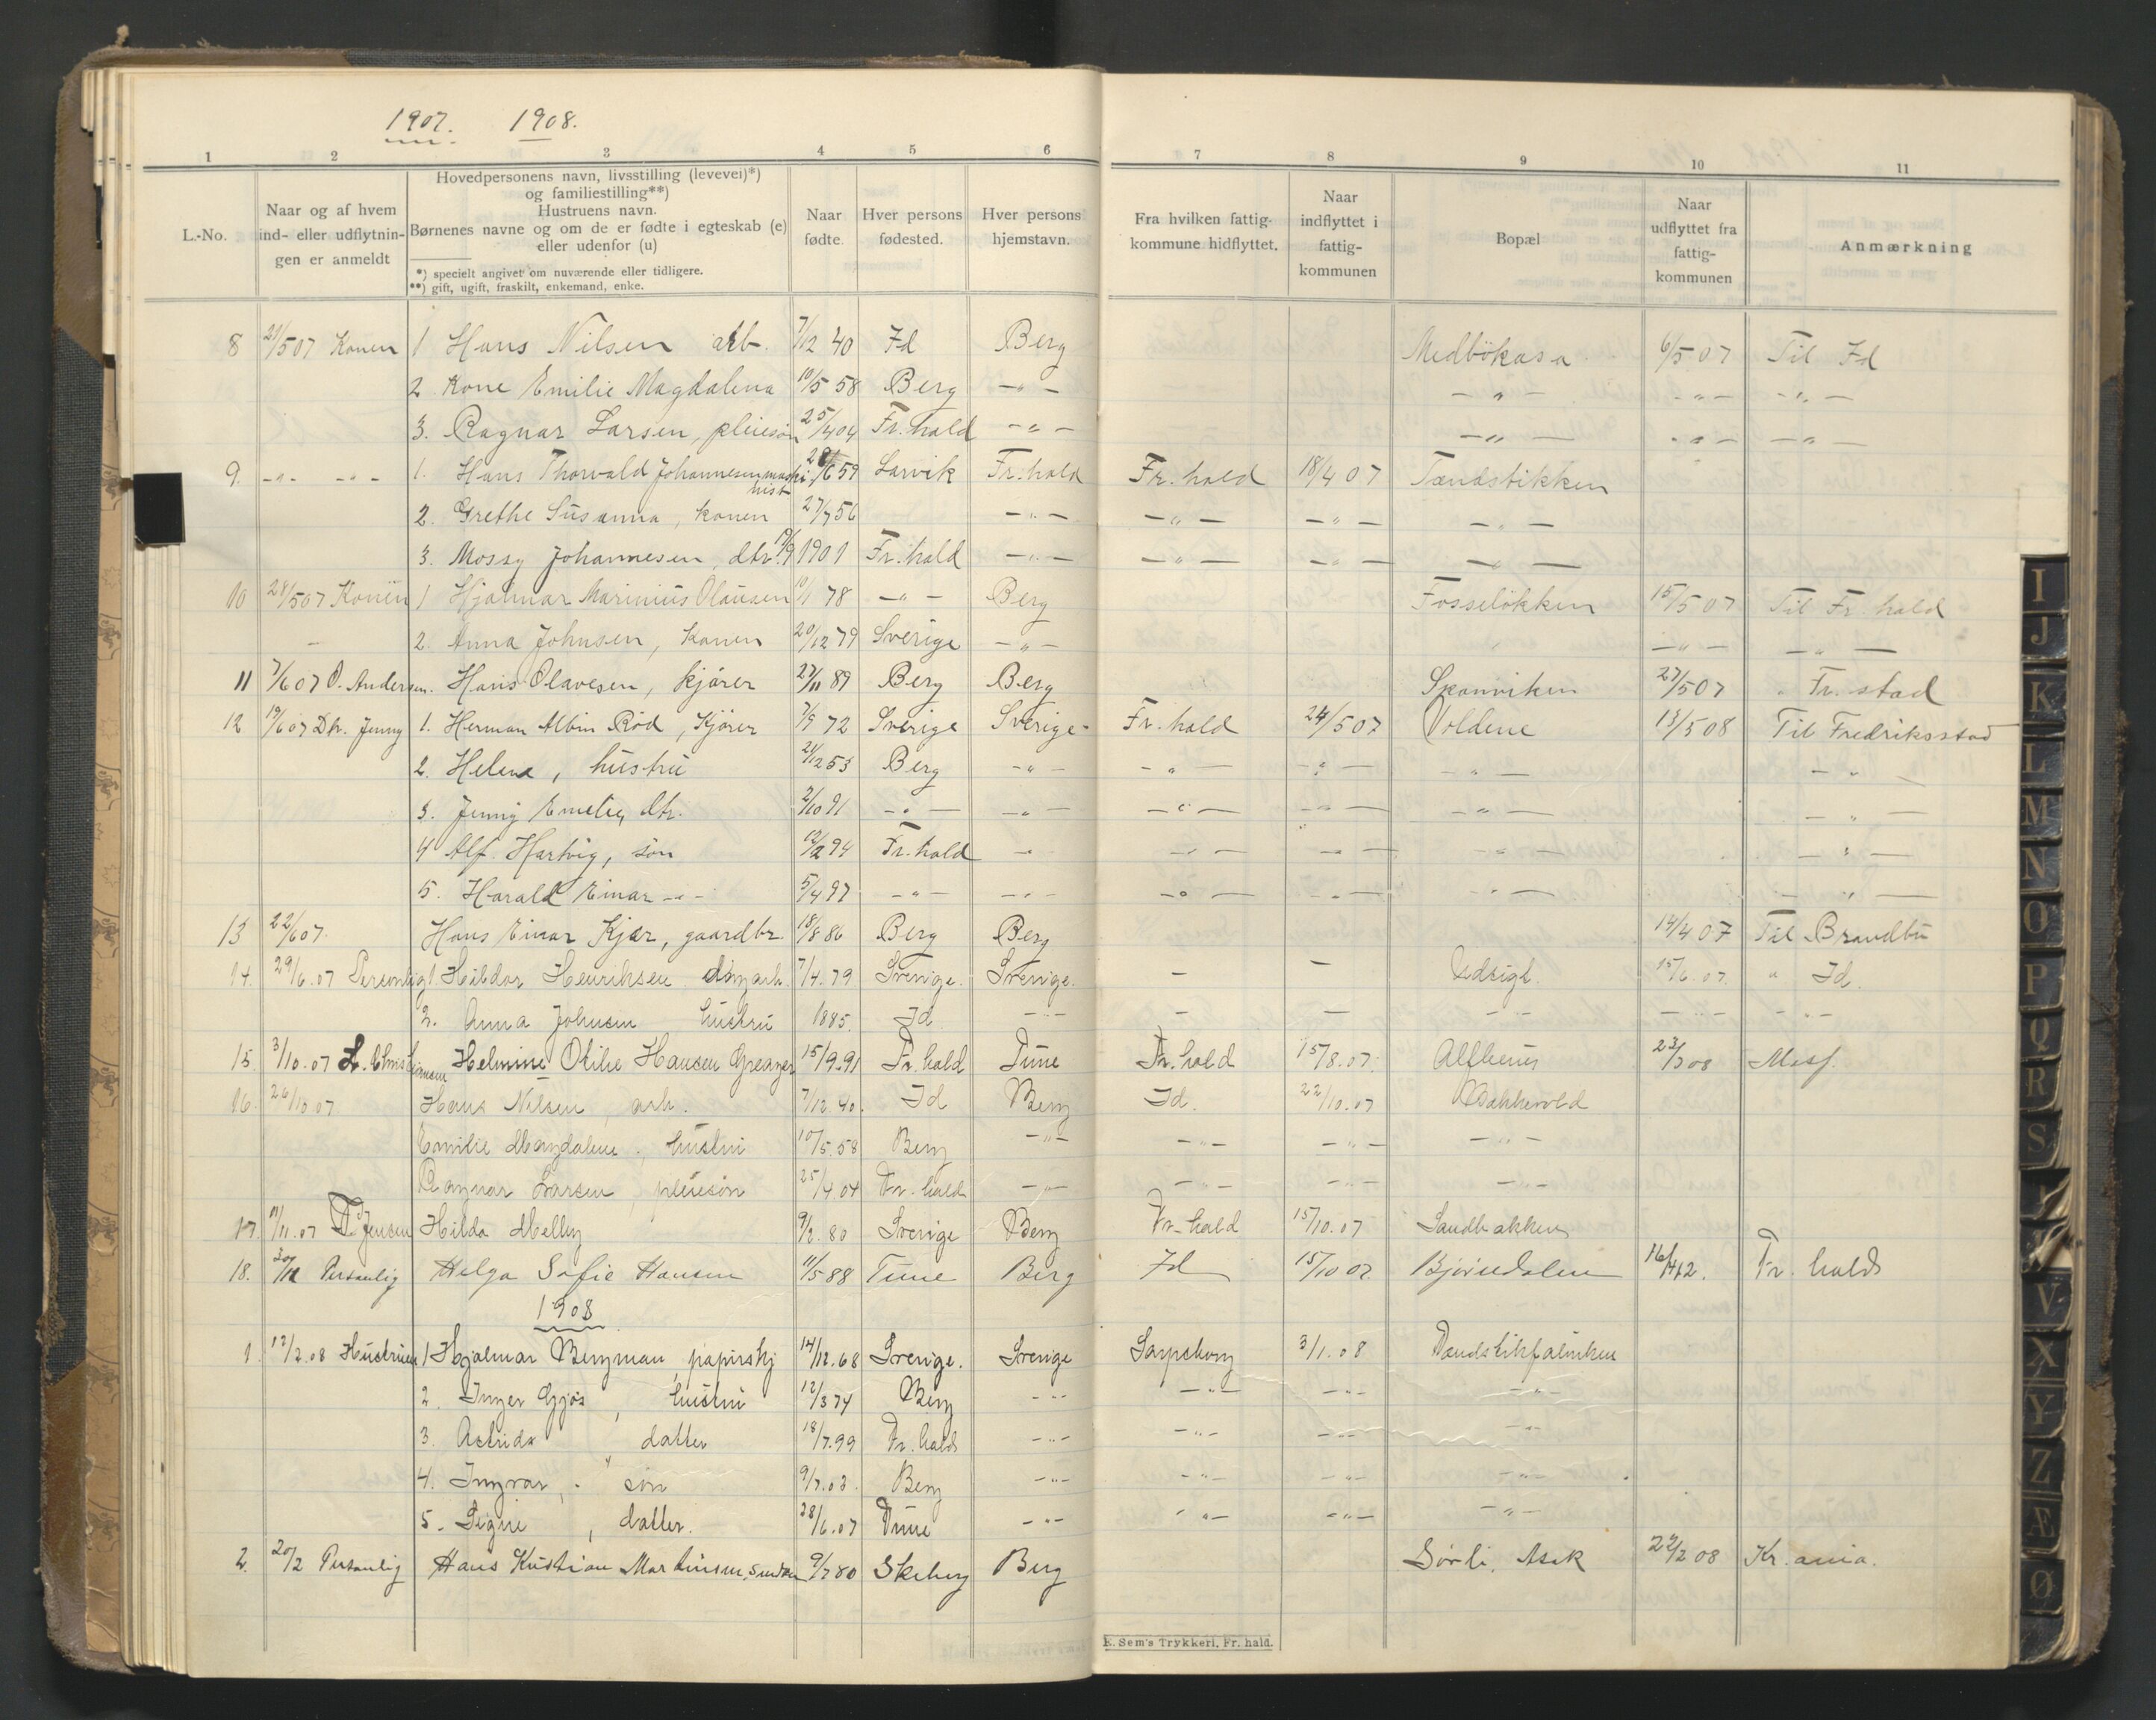 1907. 1908.
1 2 3 4 5 6 7 8 9 10 11
L.-No.
Naar og af hvem ind- eller udflytnin- gen er anmeldt
Hovedpersonens navn, livsstilling (levevei)*)
og familiestilling**)
Hustruens navn.
Børnenes navne og om de er fødte i egteskab (e)
eller udenfor (u)
*) specielt angivet om nuværende eller tidligere.
**) gift, ugift, fraskilt, enkemand, enke.
Naar fødte.
Hver persons fødested.
Hver persons hjemstavn.
Fra hvilken fattig- kommune hidflyttet.
Naar indflyttet i fattig- kommunen
Bopæl
Naar udflyttet fra fattig- kommunen
Anmærkning
8 21/5 07 Konen 1 Hans Nilsen arb. 7/12 40 Id Berg Medbökasa 6/5 07 Til Id
2. Kone Emilie Magdalena 10/5 58 Berg -"- -"- -"- -"-
3. Ragnar Larsen, pleiesön 25/4 04 Fr.hald -"- -"- -"- -"-
9. -"- -"- 1. Hans Thorvald Johannesen maski nist 6 59 Larvik Fr.hald Fr.hald 18/4 07 Tændstikken
2. Grethe Susanna, konen 27/7 56 -"- -"- -"- -"-
3. Mossy Johannesen, dtr. 19/9 1901 Fr.hald -"- -"- -"- -"-
10 28/5 07 Konen 1 Hjalmar Marinius Olausen 10/1 78 -"- Berg Fosselökken 15/5 07 Til Fr.hald
- 2. Anna Johnsen, Konen 20/12 79 Sverige -"- " -"- -"-
11 7/6 07 O. Andersen. Hans Olavesen, kjörer 27/11 89 Berg Berg Skonviken 27/5 07 " Fr.stad
12 19/6 07 Dtr. Jenny 1. Herman Albin Röd, Kjörer 7/9 72 Sverige Sverige- Fr.hald 24/5 07 Voldene 13/5 08 Til Fredriksstad
2. Helena, hustru 21/12 53 Berg -"- -"- -"- -"- -"-
3. Jenny Emelie, dtr. 2/10 91 -"- -"- -"- -"- -"- -"-
4 Alf Hartvig, sön 12/2 94 Fr.hald -"- -"- -"- -"- -"-
5. Harald Einar -"- 5/4 97 -"- -"- -"- -"- -"- -"-
13 22/6 07 Hans Einar Kjær, gaardbr. 18/8 86 Berg Berg 14/4 07 Til Brandbu
14. 29/6.07 Personlig 1. Hildor Henriksen 7/4.79 Sverige. Sverige. - - Udsigt. 15/6.07. " Id.
2. Anna Johnsen hustru 1885. Id -"- - - -"- -"- -"-
15. 3/10.07 L. Christiansen Helmine Otilie Hansen Greager 15/9.91 Fr.hald Tune Fr.hald 15/8.07. Alfheim 23/3 08
16. 26/10 07. Hans Nilsen, arb. 7/12.40. Id Berg Id. 22/10.07 Bakkevold
Emilie Magdalene, hustru 10/5.58 Berg -"- -"- -"- -"-
Ragnar Larsen, pleiesön 25/4 04 Fr.hald -"- -"- -"- -"-
17. 11/11.07 Jensen Hilda Melby 9/2.80 Sverige Berg Fr.hald 15/10.07 Sandbakken
18. 30/12 Personlig Helga Sofie Hansen 11/5 88 Tune Berg Id 15/10 07 Björnedalen 16/4 12. Fr.hald
1908
1. 12/2.08 Hustruen 1 Hjalmar Bergman, papirskj 14/12.68 Sverige. Sverige Sarpsborg 3/1.08 Tændstikfabriken
2. Inger Gjös, hustru 12/3 74 Berg -"- -"- -"- -"-
3. Astrida " datter 18/7.99 Fr.hald -"- -"- -"- -"-
4. Ingvar, " sön 9/7.03. Berg -"- -"- -"- -"-
5. Signe, datter. 28/6.07 Tune -"- -"- -"- -"-
2. 20/2 Personlig Hans Kristian Martinsen, 9/7 80 Skeberg Berg Sörli, Asak 22/2 08 Kr.ania.
E. Sem's Trykkeri, Fr.hald.
I
J
K
L
M
N
O
P
Q
R
S
V
X
Y
Z
Æ
Ø